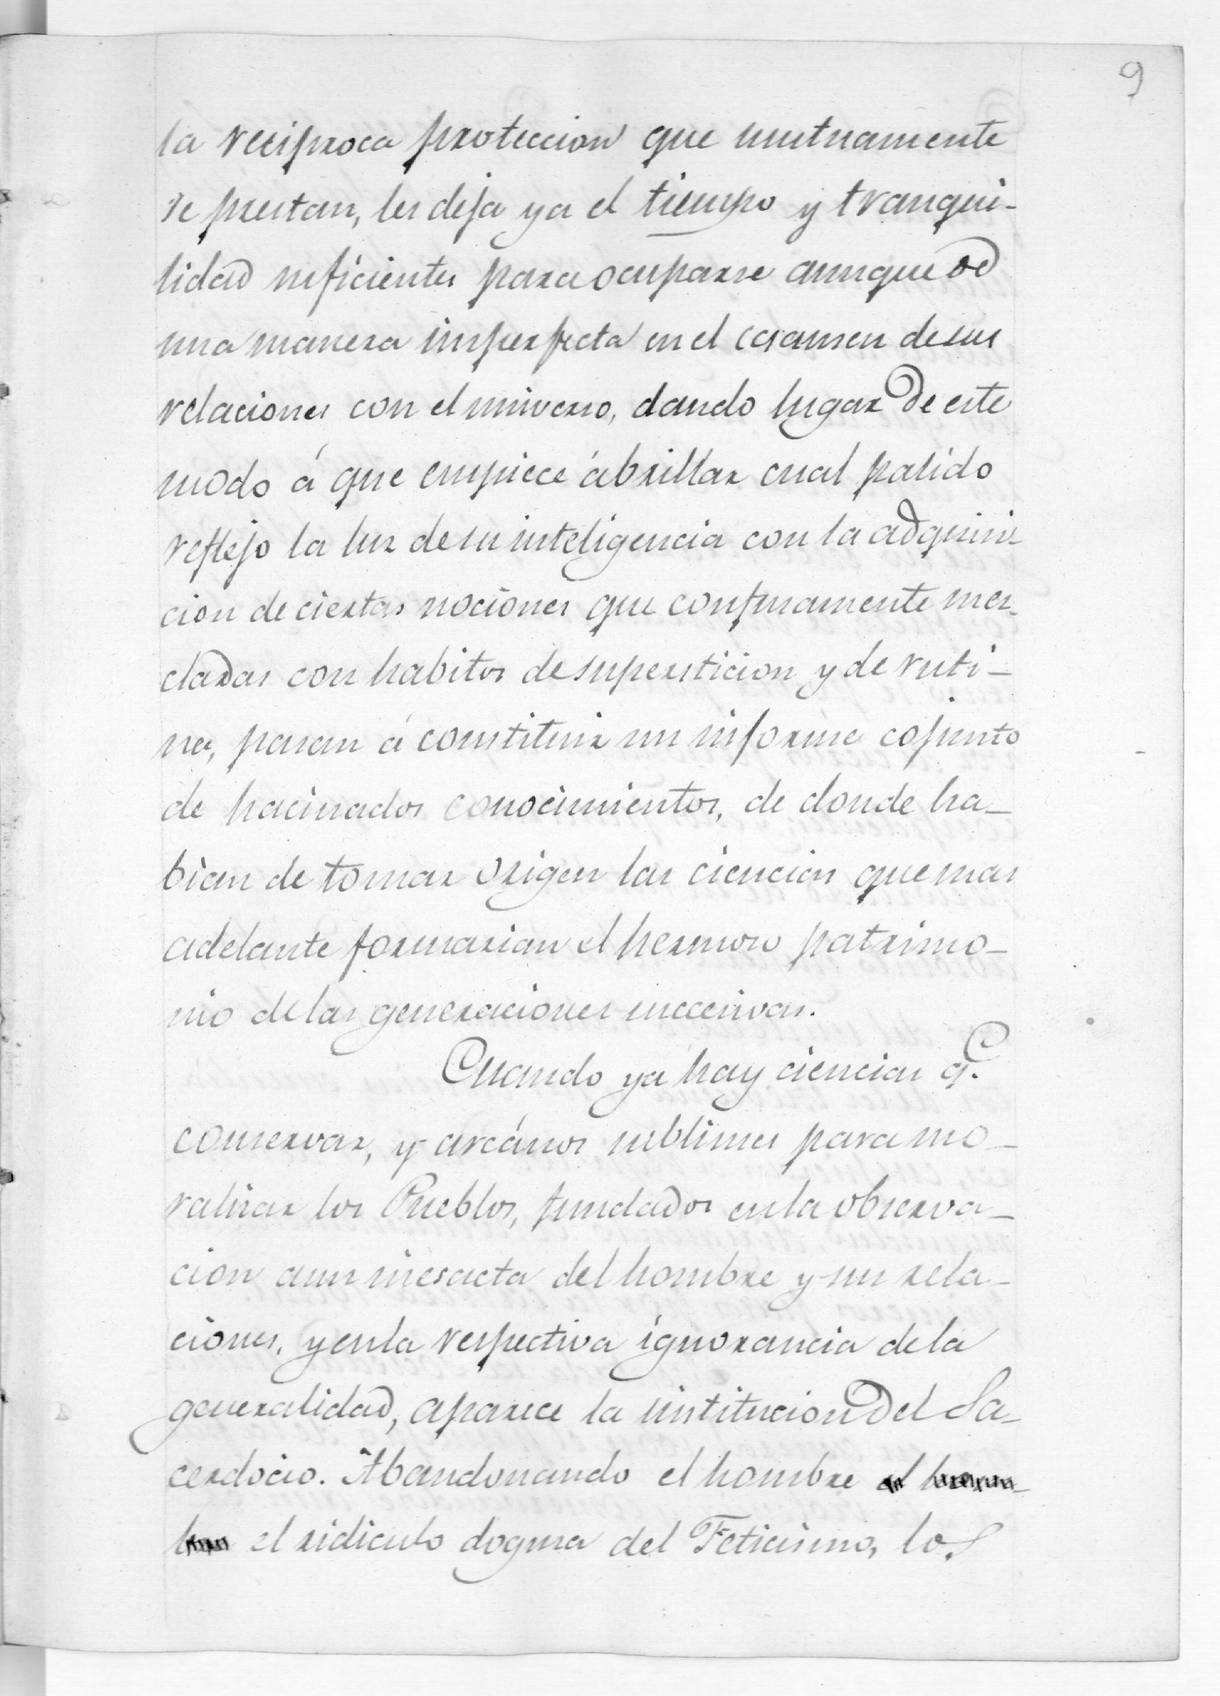 9
la reciproca proteccion que mutuamente
se prestan, les deja ya el tiempo y tranqui-
lidad suficientes para ocuparse aunque de
una manera imperfecta en el ecsamen de sus
relaciones con el universo, dando lugar de este
modo á que empiece á brillar cual palido
reflejo la luz de su inteligencia con la adquisi-
cion de ciertas nociones que confusamente mez-
cladas con habitos de supersticion y de ruti-
na, pasan á constituir un informe cojunto
de hacinados conocimientos, de donde ha-
bian de tomar origen las ciencias que mas
adelante formarian el hermoso patrimo-
nio de las generaciones succesivas.
Cuando ya hay ciencias q.e
conservar, y arcános sublimes para mo-
ralizar los Pueblos, fundados en la observa-
cion aun inesacta del hombre y sus rela-
ciones, y en la respectiva ignorancia de la
generalidad, aparece la institucion del Sa-
cerdocio. Abandonando el hombre
el ridiculo dogma del Feticismo, los